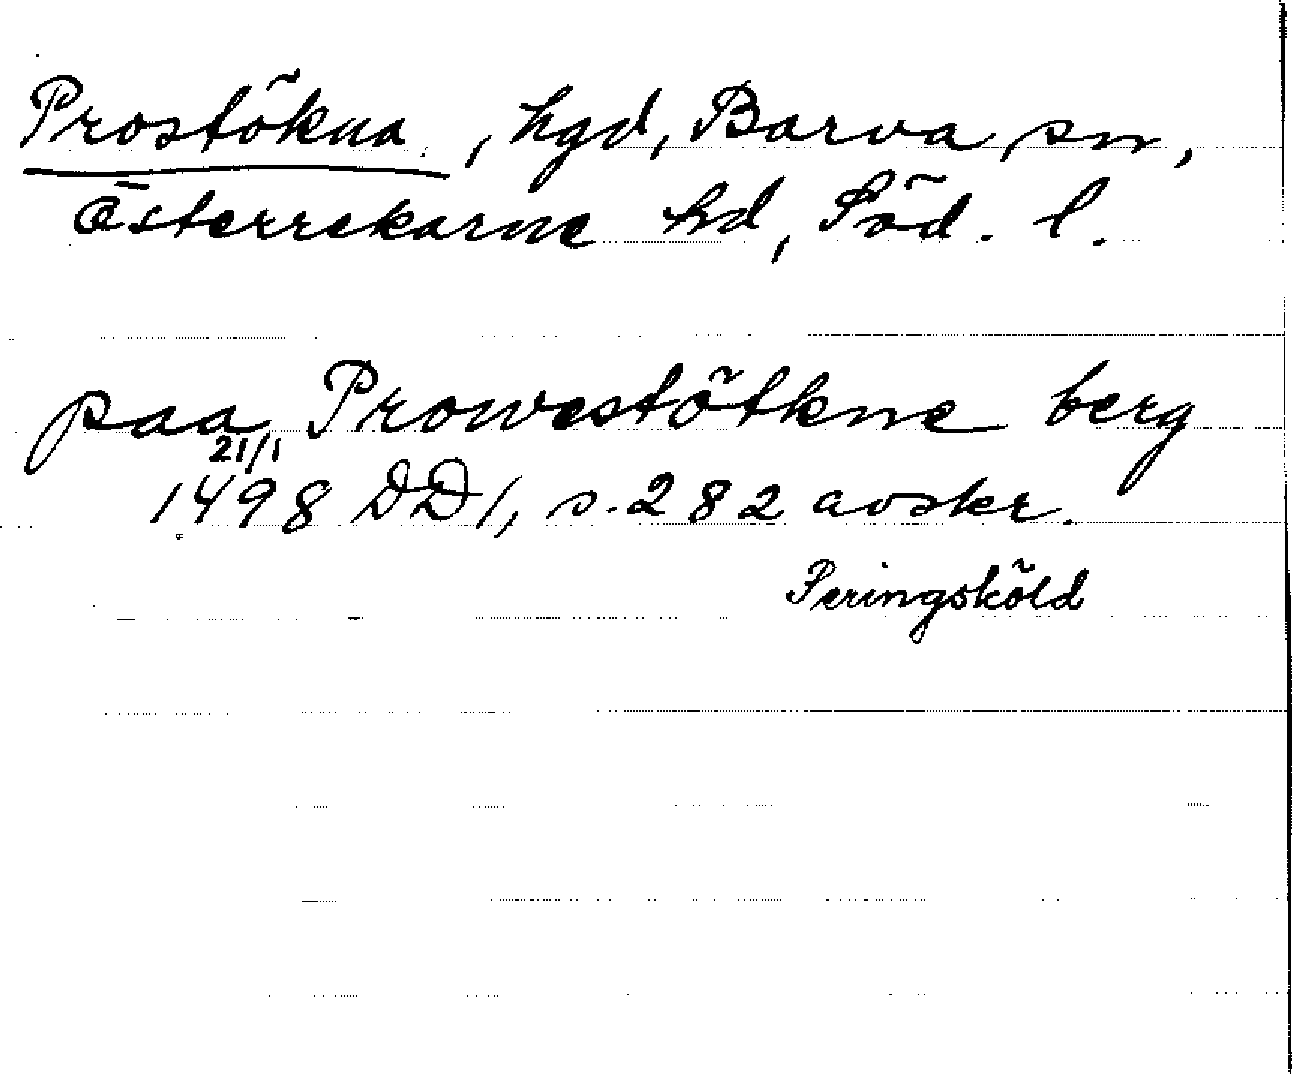 Prostökna, hgd, Barva sn,
Österrekarne hd, Söd. l.
paa Prowestötkne berg
21/1
1498 DD 1, s. 282 avskr.
Peringsköld